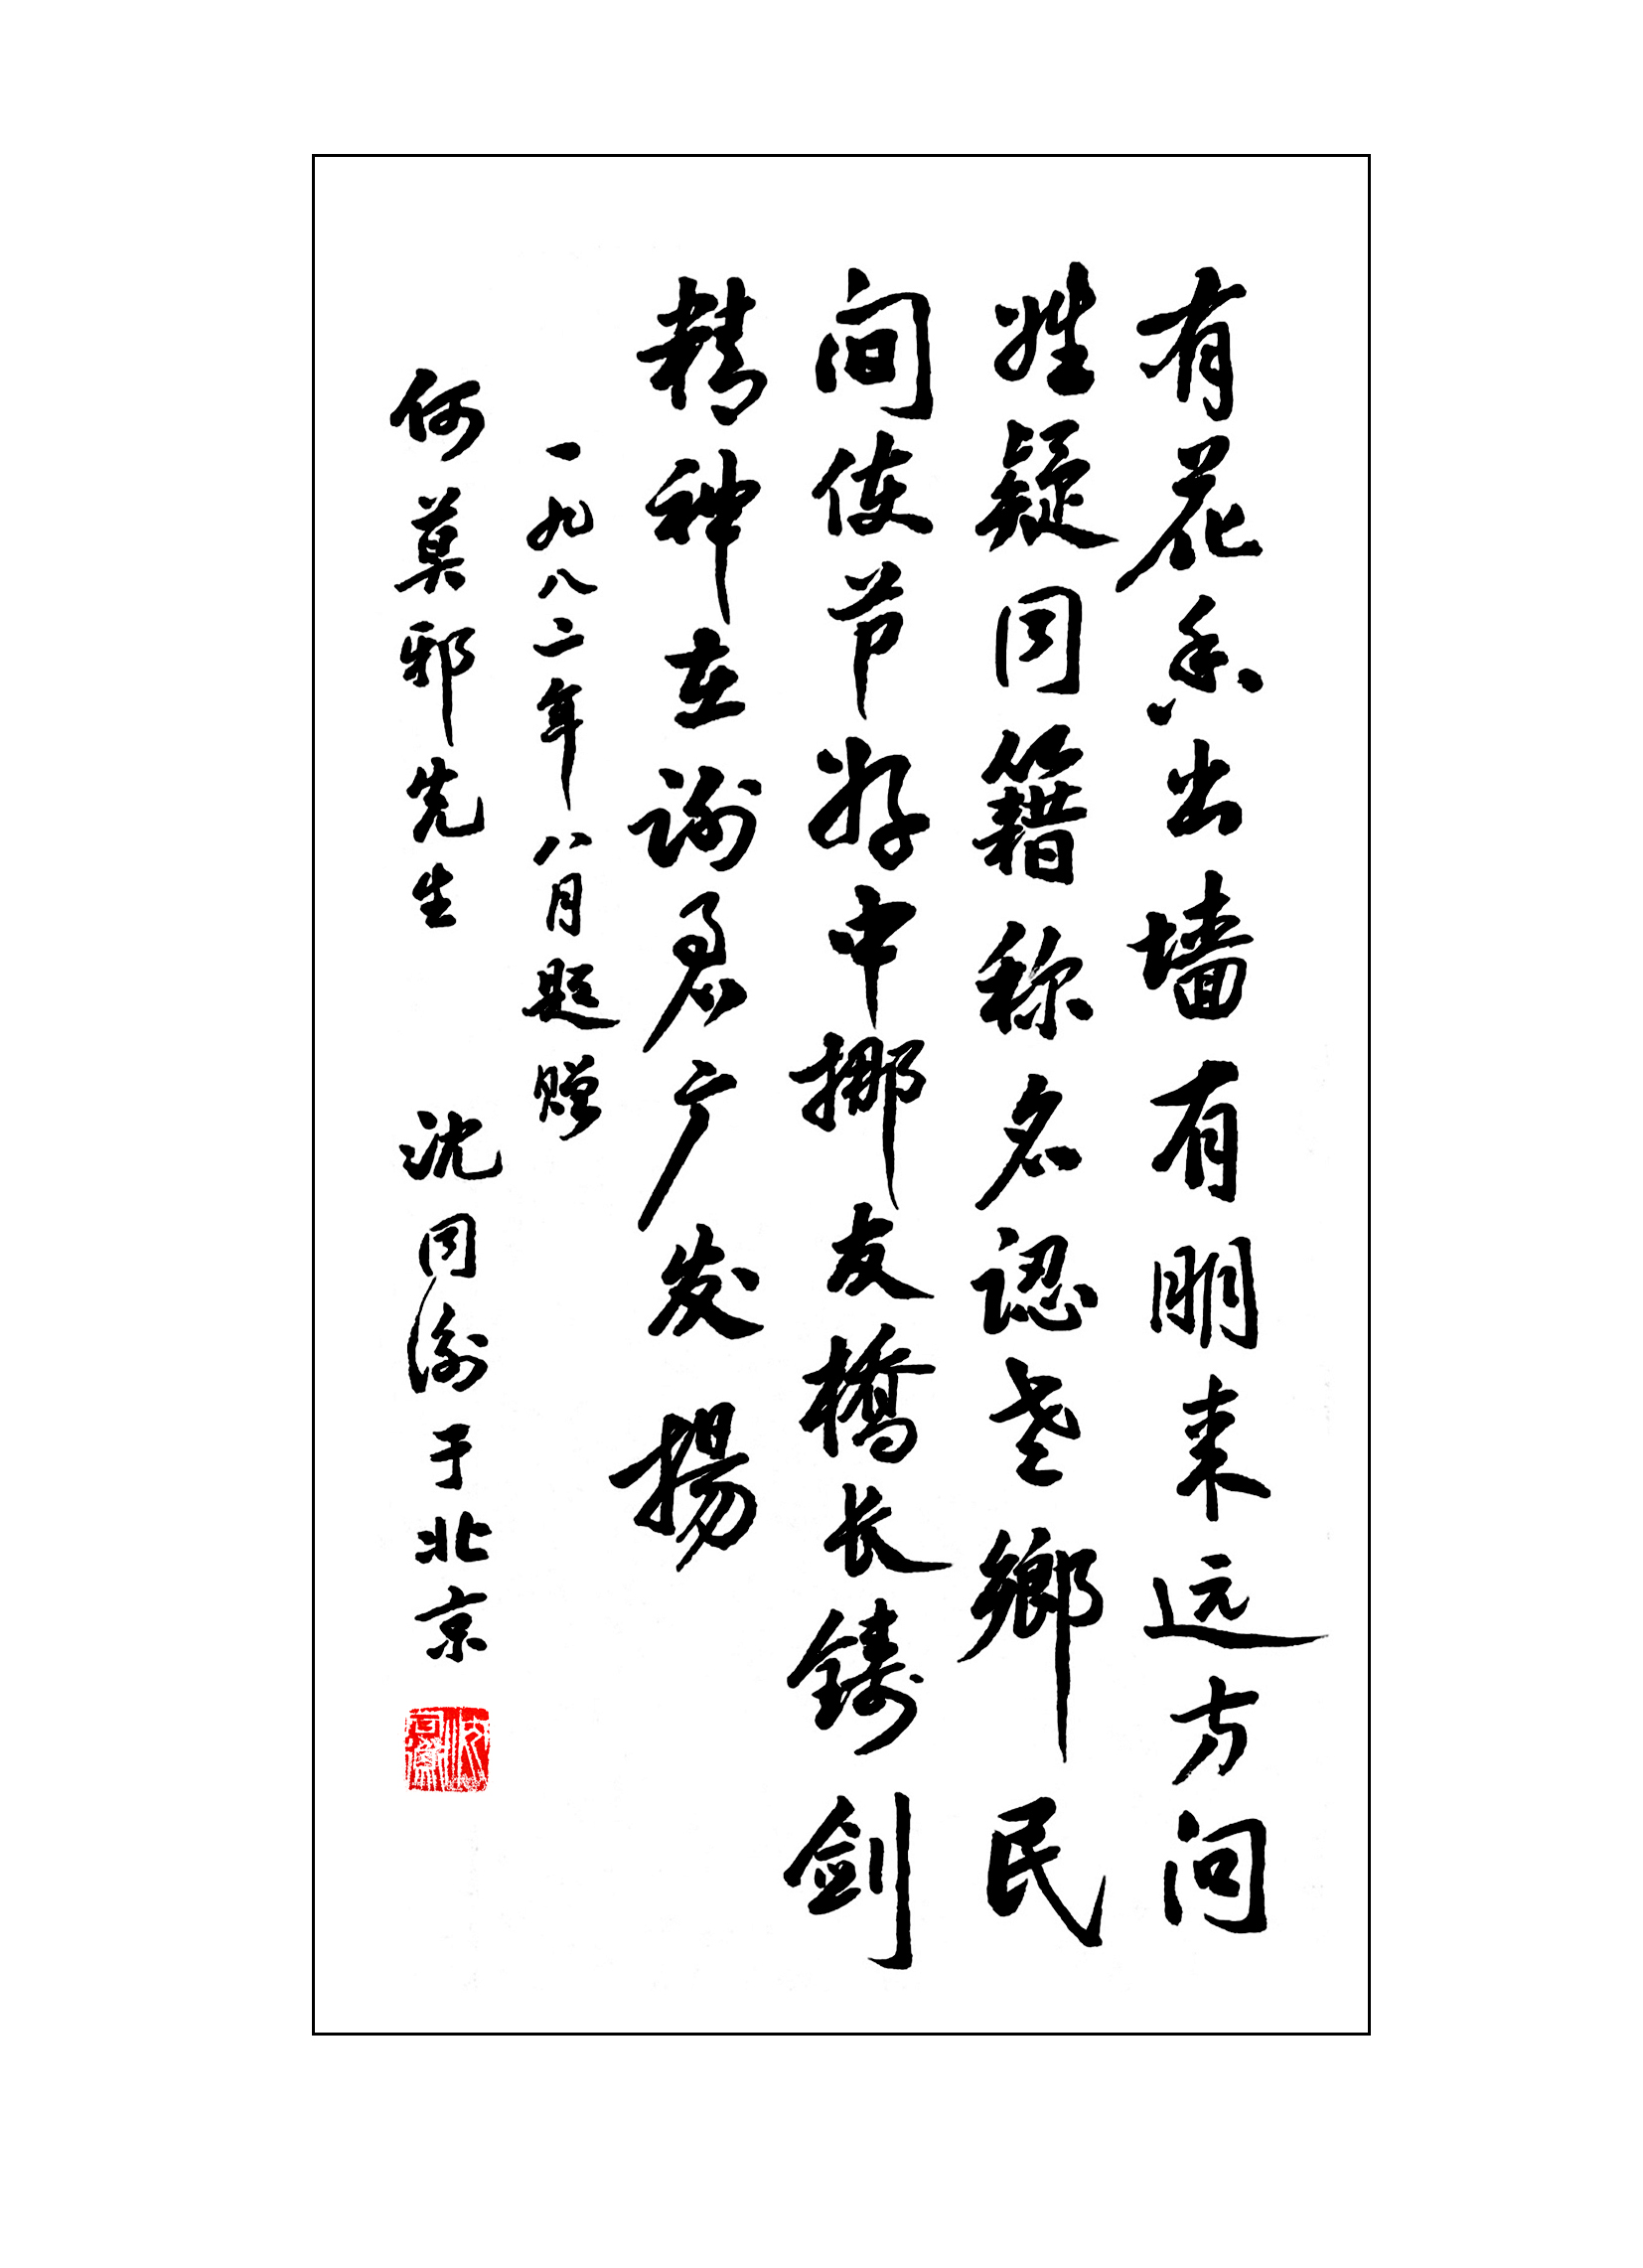 有花香出墙有朋来远方问
姓疑同籍称名認老鄉民
间使节游中挪友橋长铸剑
精神在谢君广发揚
一九八二年八月题赠
何莫邪先生 沈同衡于北京